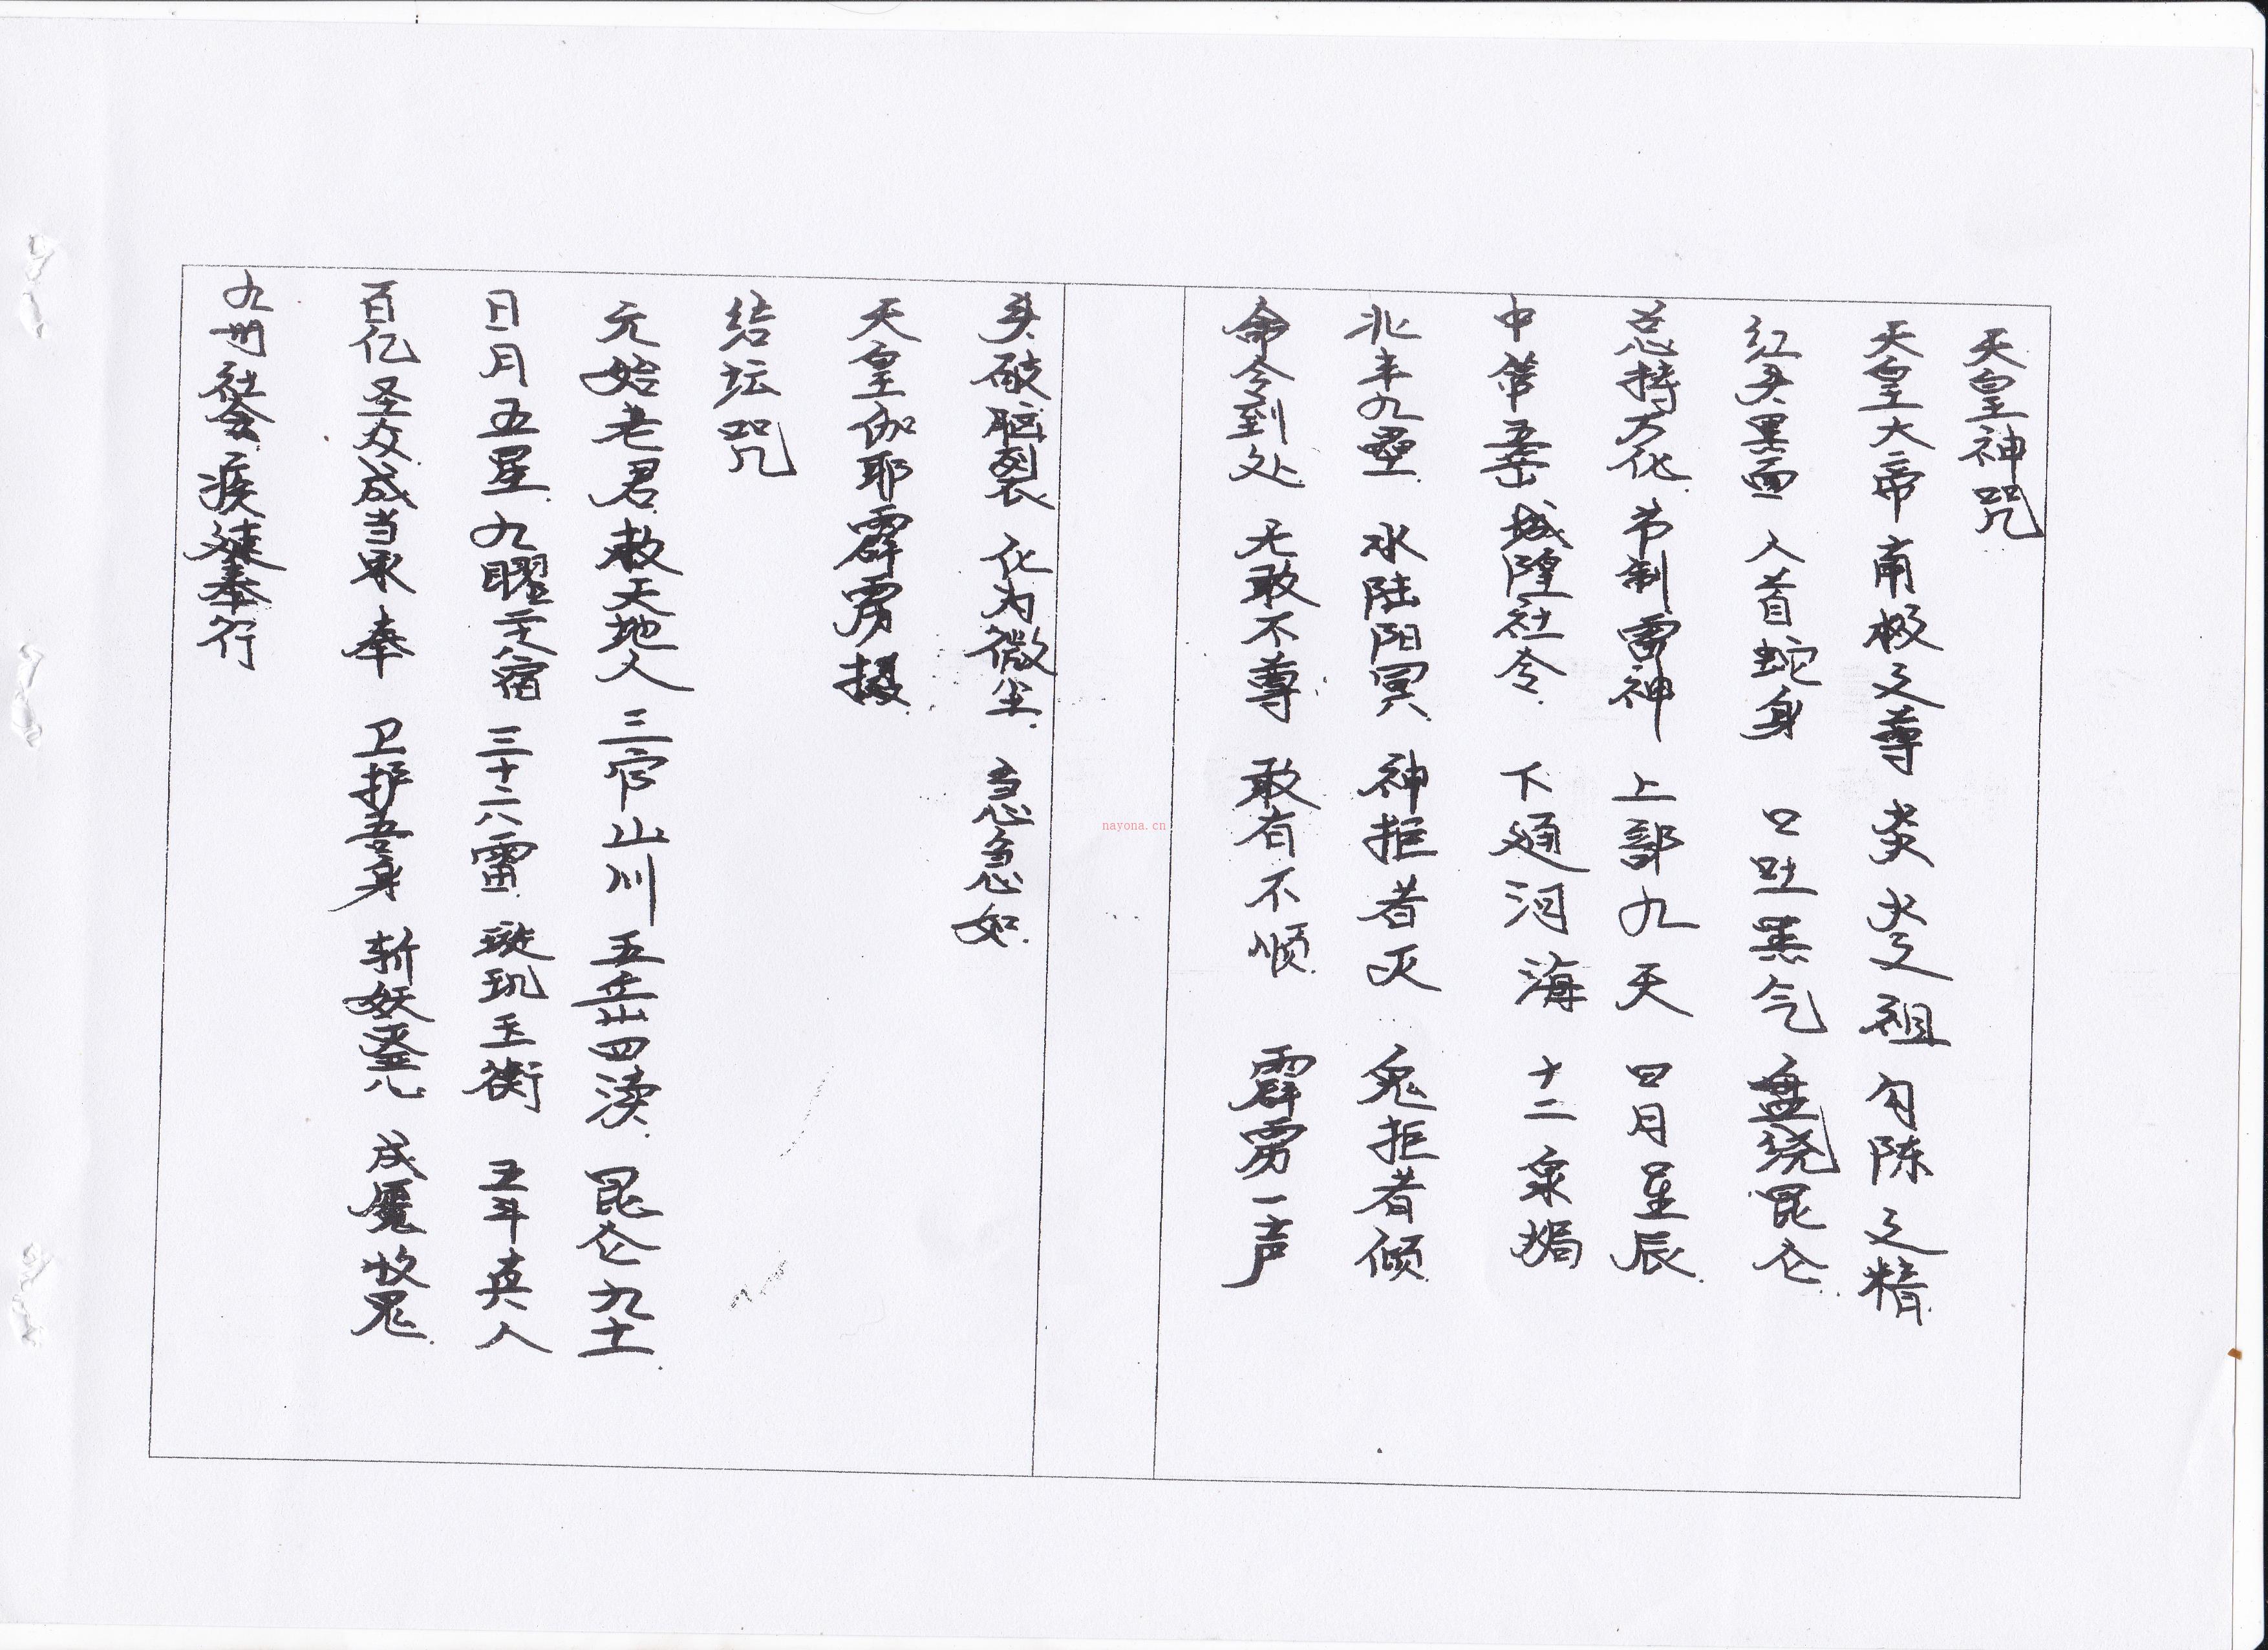 天皇神咒
天皇大帝 南极之尊 炎炎之祖 勾陈之精
红头黑面 人首蛇身 口吐黑气 盘绕昆仑
总持万化 节制雷神 上部九天 日月星辰
中管五岳 城隍社令 下通河海 十二泉
北丰九垒 水陆阳冥 神拒者灭 鬼拒者倾
命令到处 无敢不尊 敢有不顺 霹雳一声
头破脑裂 化为微尘 急急如
天皇伽耶霹雳摄
结坛咒
元始老君 敕天地人 三官山川 五岳四渎 昆仑九土
日月五星 九曜二十八宿 三十六雷 璇玑玉衡 五斗真人
百亿圣众 咸当承奉 卫护吾身 斩妖 伐魔收鬼
九州社会 疾速奉行
nayona.cn